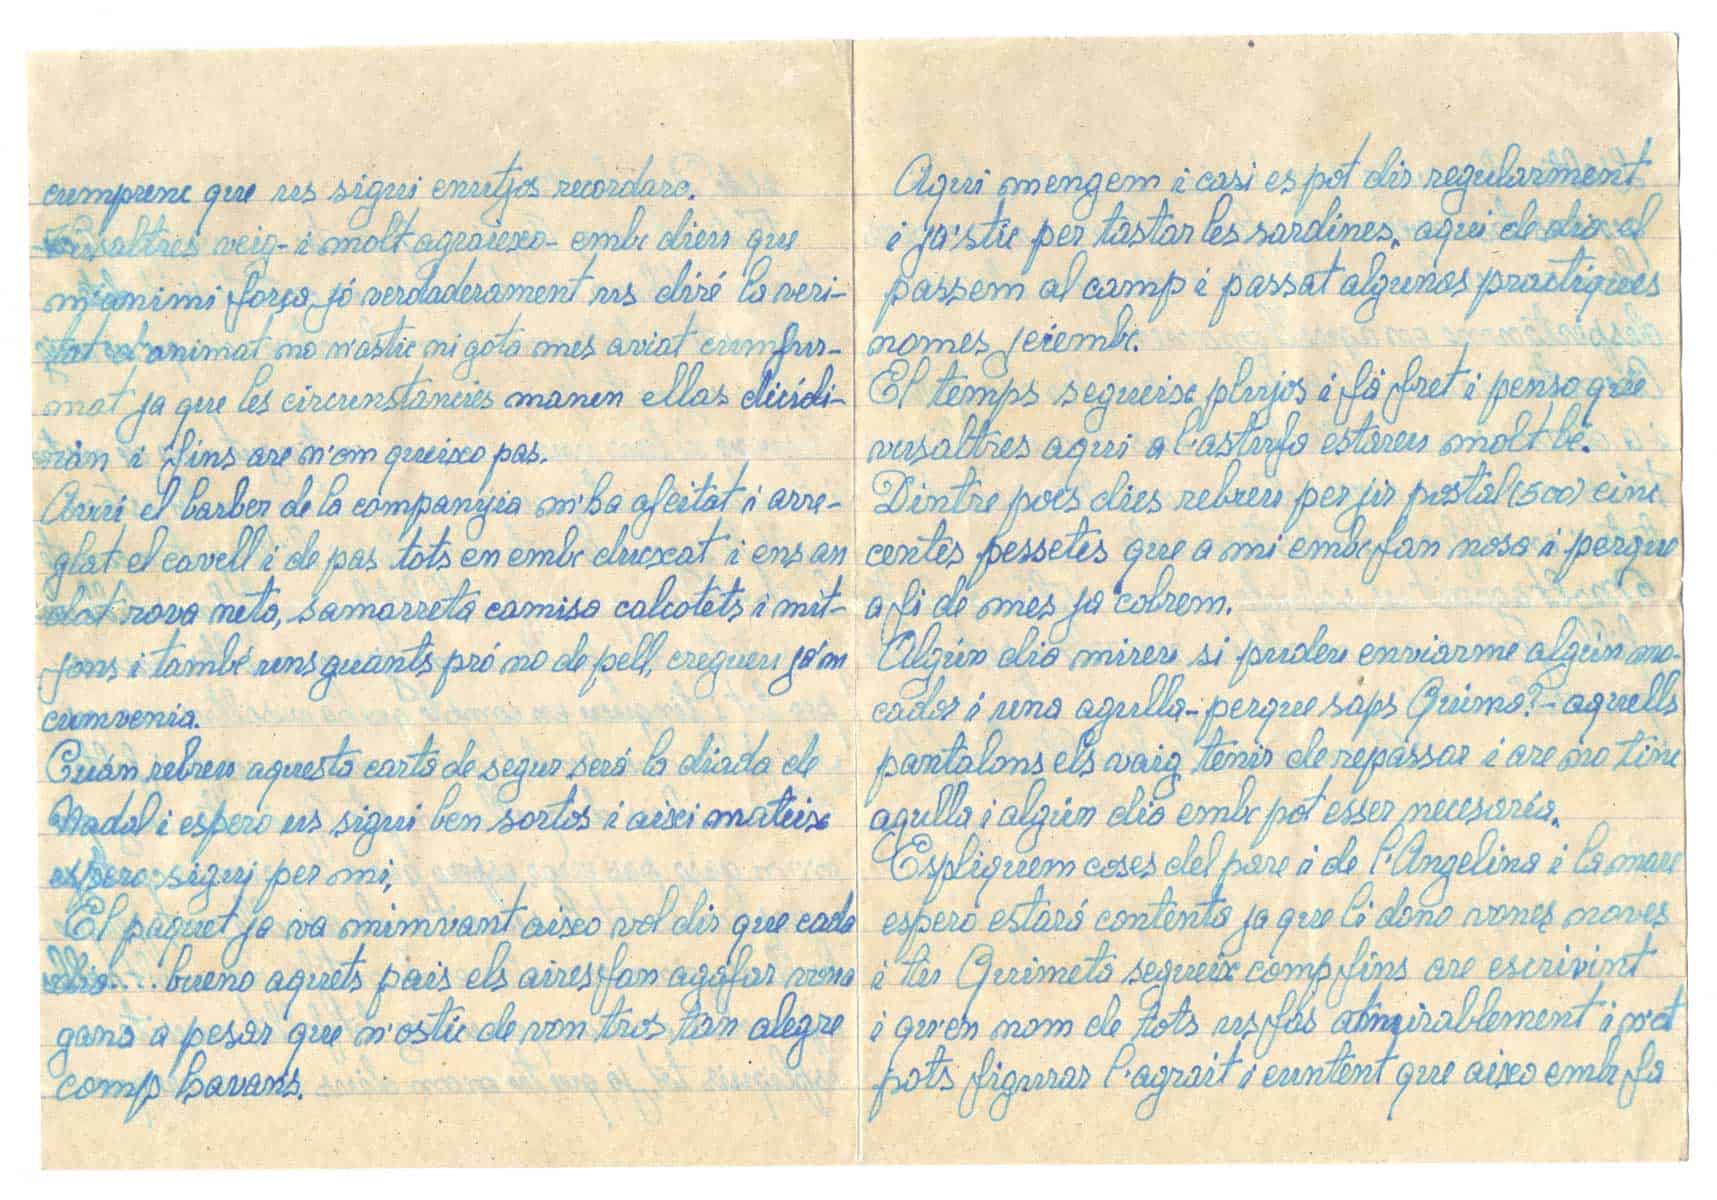 cumprenc que us sigui enutjos recordaro.
Vusaltres veig- i molt agraiexo- embc dieu que
m'animi força jó verdaderament us diré la veri-
tat d'animat no n'astic ni gota mes aviat cumfur-
mat ja que les circunstancies manen ellas dicidi-
ràn i fins are n'om queixo pas.
Avui el barber de la companyia m'ha afeitat i arre-
glat el cavell i de pas tots en embc duexat i ens an
dat rova neta, samarreta camisa calcotets i mit-
jons i també uns guants pró no de pell, cregueu ja'm
cumvenia.
Cuan rebreu aquesta carta de segur será la diada de
Nadal i espero us sigui ben sortos i aixi mateixe
espero sigui per mi,
El paquet ja va minvant aixo vol dir que cada
dia.... bueno aquets pais els aires fan agafar vona
gana a pesar que n'ostic de von tros tan alegre
comp havans.
Aqui mengem i casi es pot dir regularment
i ja'stic per tastar les sardines, aqui de dia el
passem al camp i passat algunas practiques
nomes jeiembc.
El temps segueixe plujos i fá fret i penso que
vusaltres aqui a l'asturfa estareu molt bé.
Dintre pocs dies rebreu per jir postal (500) cinc
centes pessetes que a mi embc fan nosa i perque
a fi de mes ja cobrem.
Algún dia mireu si pudeu enviarme algún mo-
cador i una agulla-perque saps Quima?- aquells
pantalons els vaig tenir de repassar i are no tinc
agulla i algún dia embc pot esser necesaria.
Espliquem coses del pare i de l'Angelina i la mare
espero estará contenta ja que li dono vones noves
i tu Quimeta segueix comp fins are escrivint
i qu'en nom de tots us fás atmirablement i n'ot
pots figurar l'agrait i cuntent que aixo embc fa